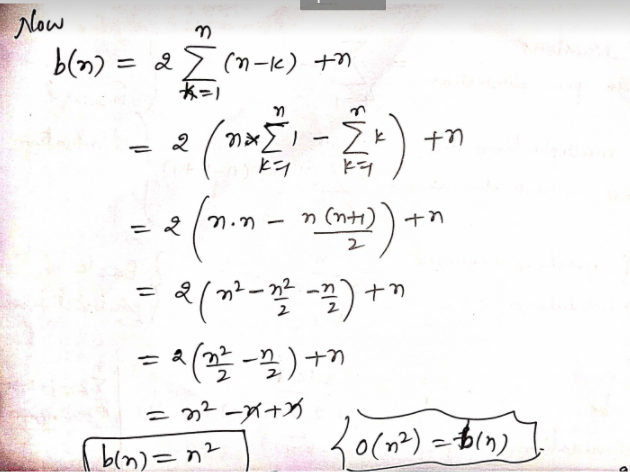 Now
b(n) = 2 n∑k=1 (n-k) + n
= 2 ( n* n∑k=1 1 - n∑k=1 k ) + n
= 2 ( n.n - n(n+1)/2 ) + n
= 2 ( n² - n²/2 - n/2 ) + n
= 2 ( n²/2 - n/2 ) + n
= n² - n + n
b(n) = n²
O(n²) = b(n)